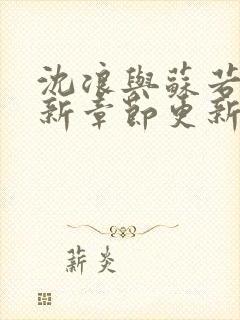 沈浪與蘇若
新章節更新
薪炎